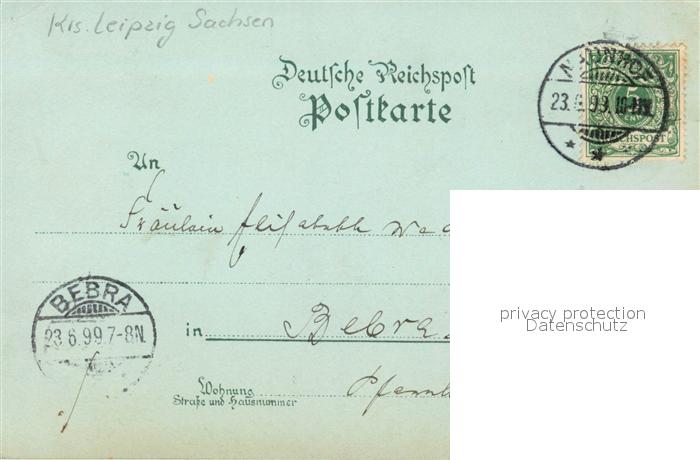 Krs. Leipzig Sachsen
Deutsche Reichspost
Postkarte
NAUNHOF
23.6.99.
5
CHSPOST
An
Fräulein Elisabeth
BEBRA
23.6.99.7-8N.
in Bebra
Wohnung
Straße und Hausnummer
privacy protection
Datenschutz